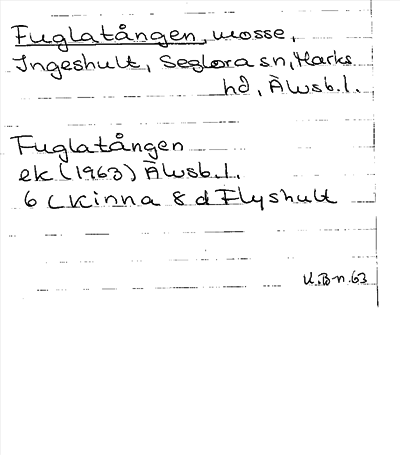 Fuglatången, mosse,
Ingeshult, Seglora sn, Marks
hd, Älvsb.l.
Fuglatången
ek (1963) Älvsb.l.
6 C Kinna 8 d Flyshult
U.B-n.63